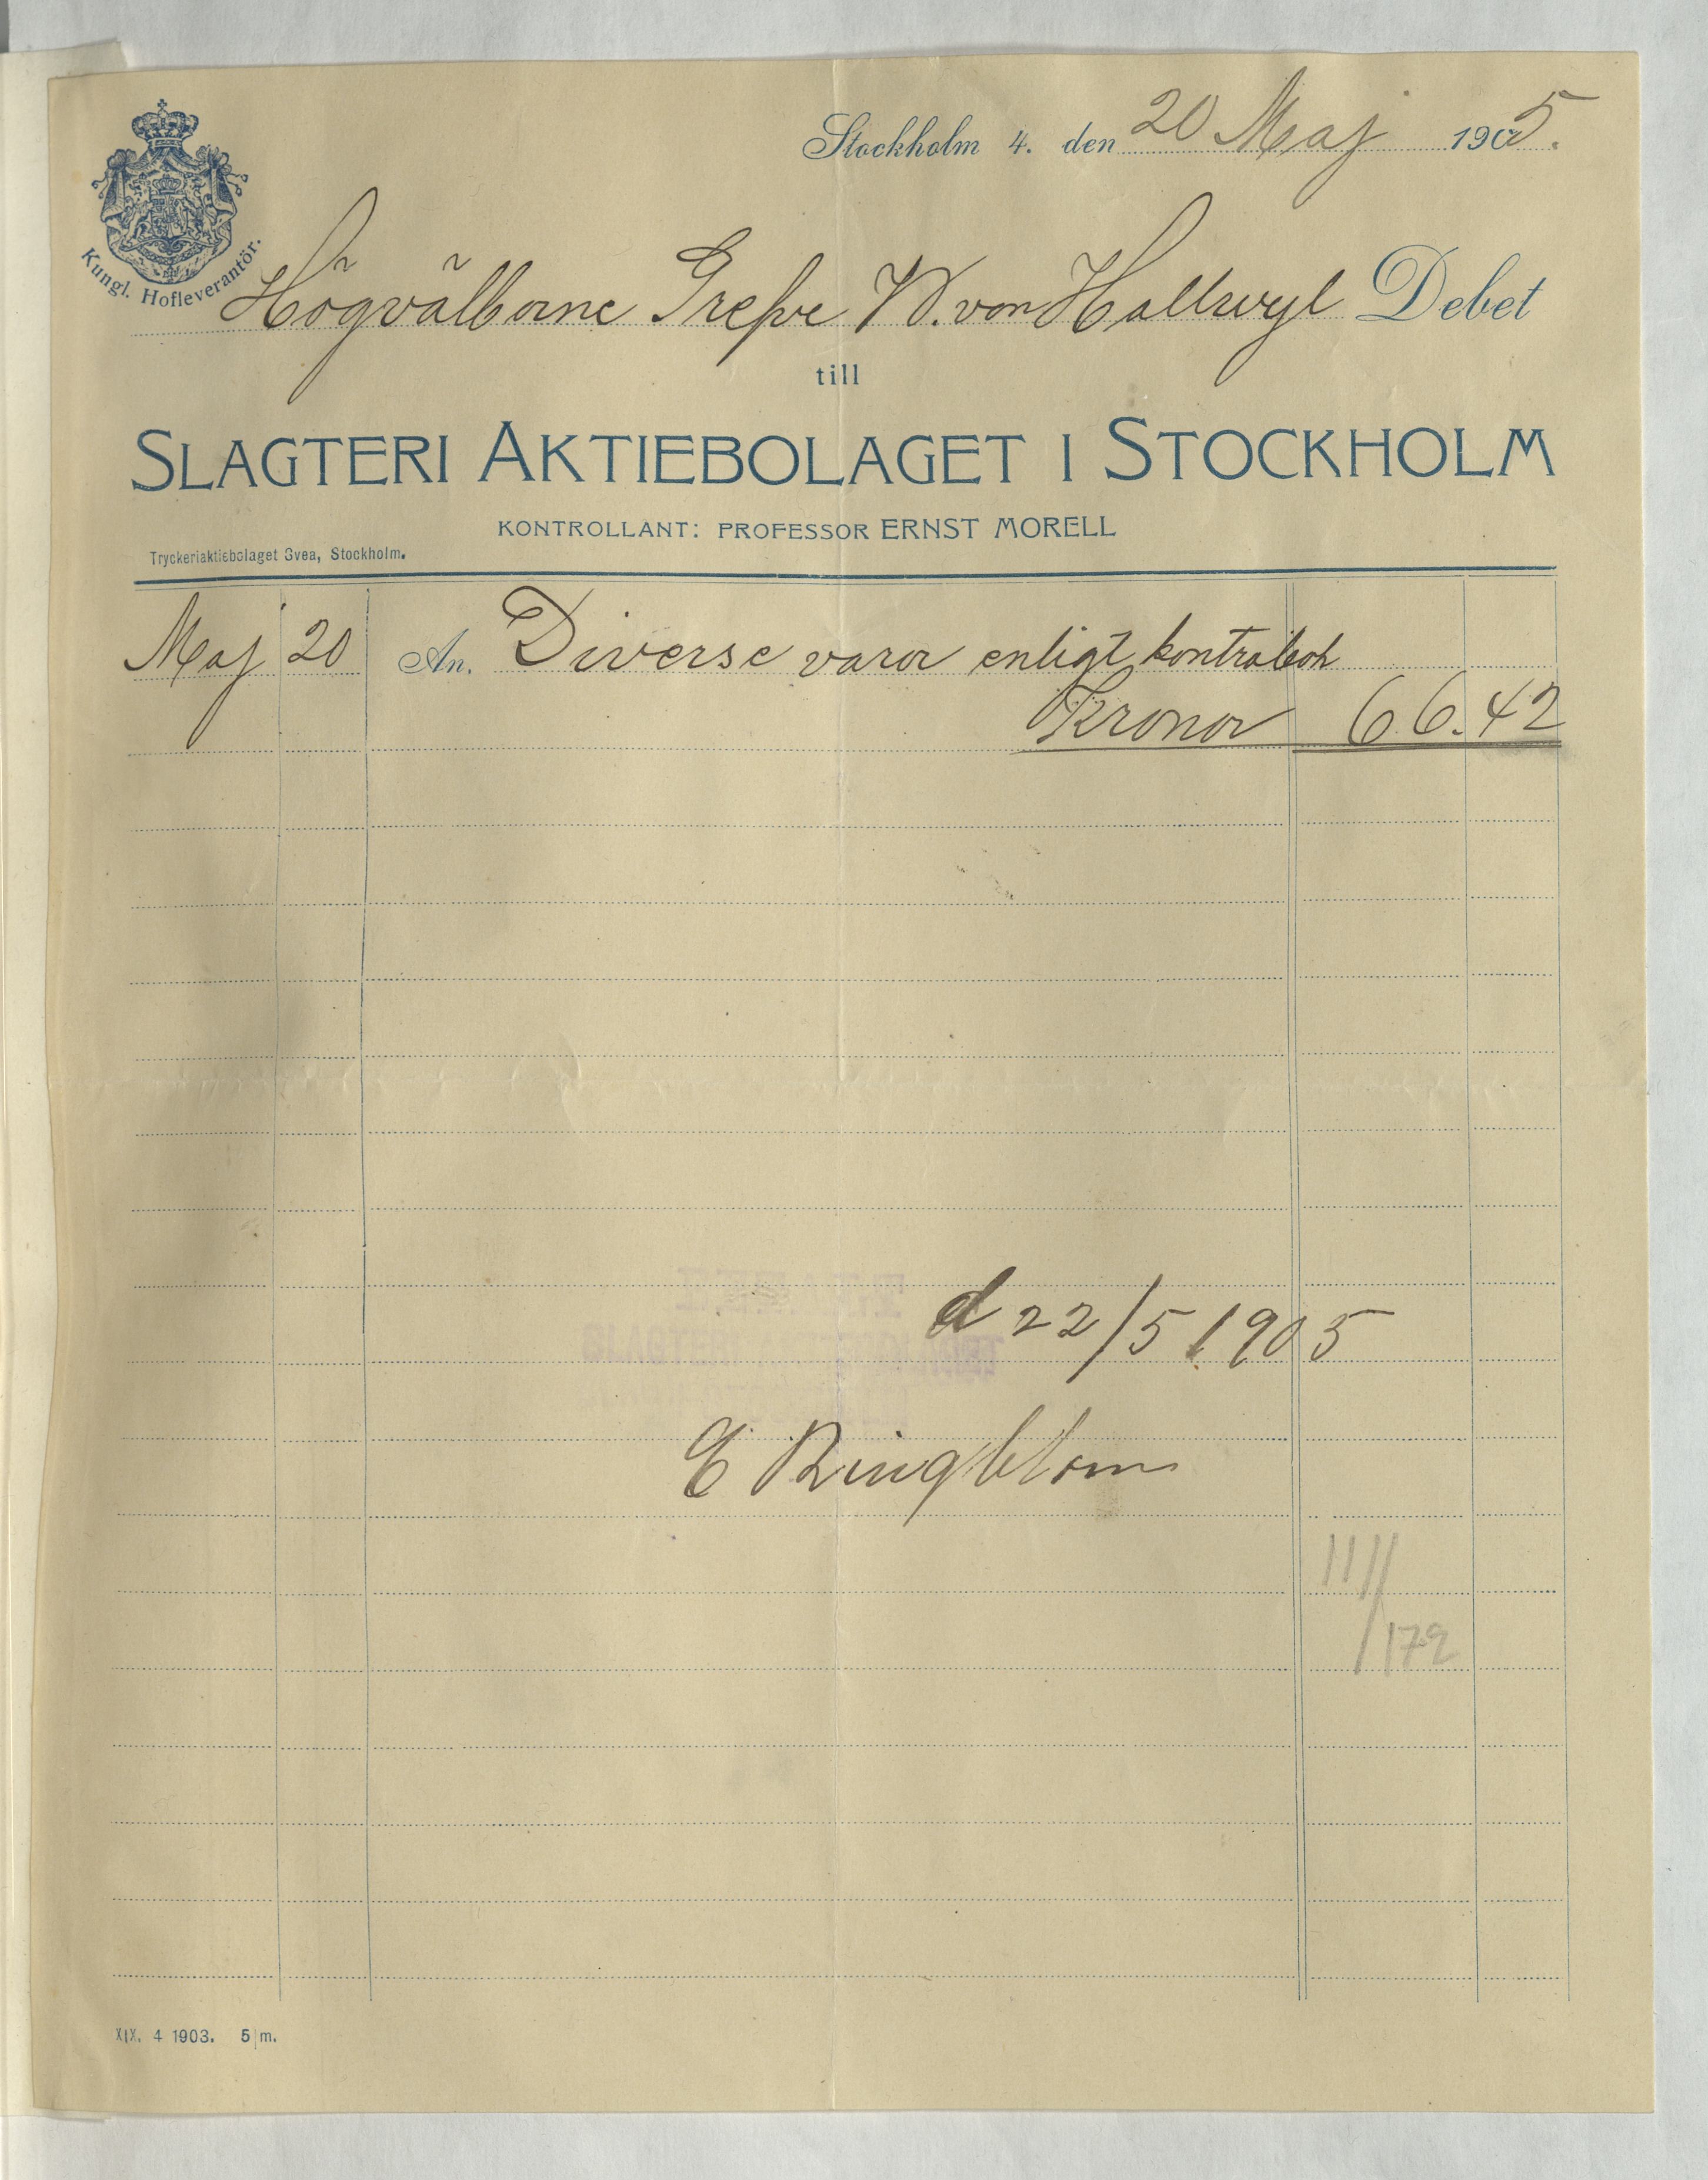 Stockholm 4. den 20 Maj 1905.
Kungl. Hofleverantör.
Högvälborne Grefve W. von Hallwyl Debet
till
SLAGTERI AKTIEBOLAGET I STOCKHOLM
KONTROLLANT: PROFESSOR ERNST MORELL
Tryckeriaktiebolaget Svea, Stockholm.
Maj 20 An. Diverse varor enligt kontrabok
Kronor 66.42
d 22/5 1905
E Ringblom
11//
/172
XIX. 4 1903. 5 m.